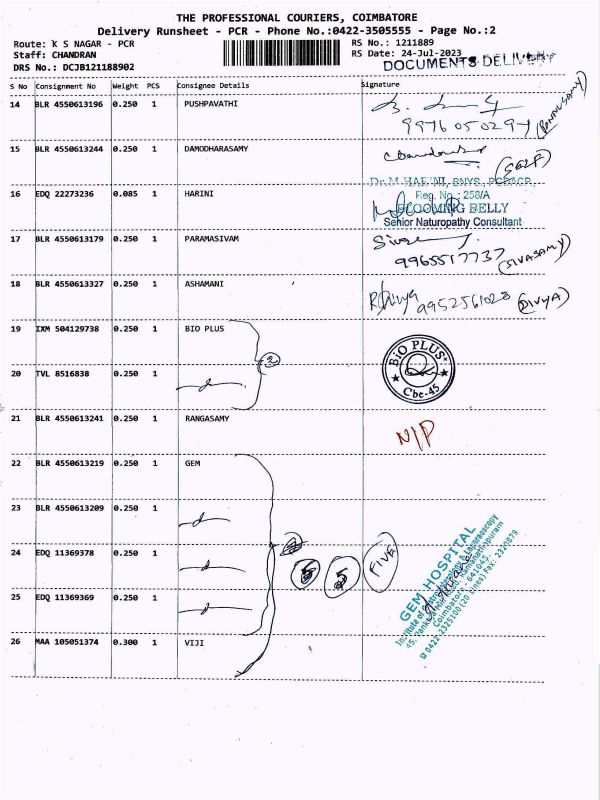 THE PROFESSIONAL COURIERS, COIMBATORE
Delivery Runsheet - PCR - Phone No.:0422-3505555 - Page No.:2
Route: K S NAGAR - PCR RS No.: 1211889
Staff: CHANDRAN RS Date: 24-Jul-2023
DRS No.: DCJB121188902 DOCUMENTS DELIVERY
S No Consignment No Weight PCS Consignee Details Signature
14 BLR 4550613196 0.250 1 PUSHPAVATHI
15 BLR 4550613244 0.250 1 DAMODHARASAMY
(SELF)
Dr. M. HARINI, BNYS.,
16 EDQ 22273236 0.085 1 HARINI Reg. No : 258/A
BLOOMING BELLY
Senior Naturopathy Consultant
17 BLR 4550613179 0.250 1 PARAMASIVAM
9965517737 (SIVASAMY)
18 BLR 4550613327 0.250 1 ASHAMANI
9952561028 (DIVYA)
19 IXM 504129738 0.250 1 BIO PLUS
2
BIO PLUS
Cbe-45
20 TVL 8516838 0.250 1
21 BLR 4550613241 0.250 1 RANGASAMY
N/P
22 BLR 4550613219 0.250 1 GEM
23 BLR 4550613209 0.250 1
24 EDQ 11369378 0.250 1
5 5 FIVE
25 EDQ 11369369 0.250 1
26 MAA 105051374 0.300 1 VIJI
GEM HOSPITAL
Coimbatore - 641045.